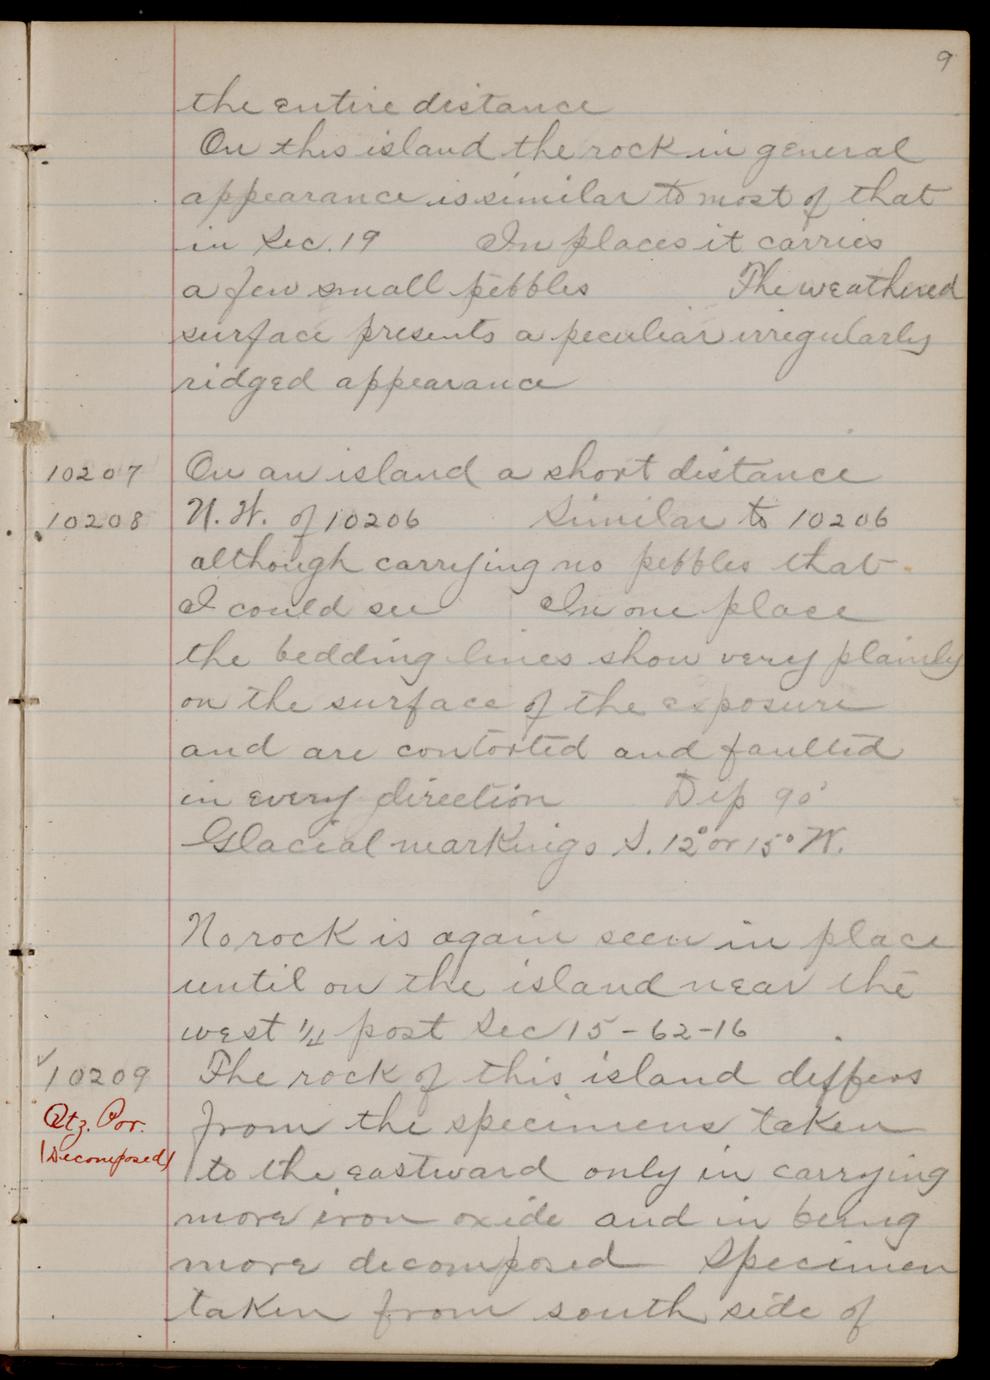 9
the entire distance
On this island the rock in general
appearance is similar to most of that
in Sec. 19 In places it carries
a few small pebbles The weathered
surface presents a peculiar irregularly
ridged appearance
10207 On an island a short distance
10208 N. W. of 10206 Similar to 10206
although carrying no pebbles that
I could see In one place
the bedding lines show very plainly
on the surface of the exposure
and are contorted and faulted
in every direction Dip 90°
Glacial markings S. 12° or 15° W.
No rock is again seen in place
until on the island near the
west 1/4 post Sec 15-62-16
√10209 The rock of this island differs
Qtz. Por. from the specimens taken
(Decomposed) to the eastward only in carrying
more iron oxide and in being
more decomposed Specimen
taken from south side of